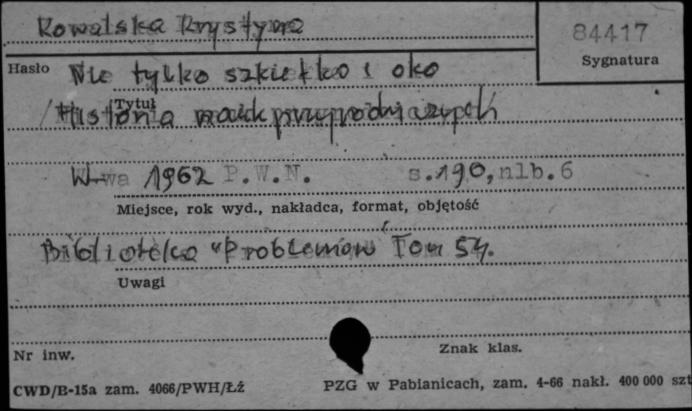 Kowalska Krystyna
84417
Sygnatura
Hasło Nie tylko szkiełko i oko
Tytuł
/Historia nauk przyrodniczych
W-wa 1962 P.W.N. s.190, nlb.6
Miejsce, rok wyd., nakładca, format, objętość
Biblioteka "Problemów" Tom 54.
Uwagi
Nr inw.
Znak klas.
CWD/B-15a zam. 4066/PWH/Łź
PZG w Pabianicach, zam. 4-66 nakł. 400 000 szt